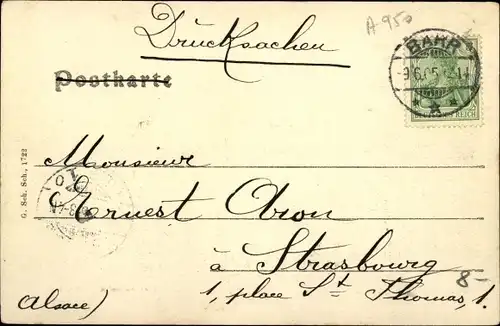 Drucksachen
A 950
Postkarte
BAHR
-9.6.05
DEUTSCHES REICH
G. Sch. Sch., 1722
Monsieur
Ernest Oson
à Strasbourg
1, place St Thomas, 1.
Alsace)
8-